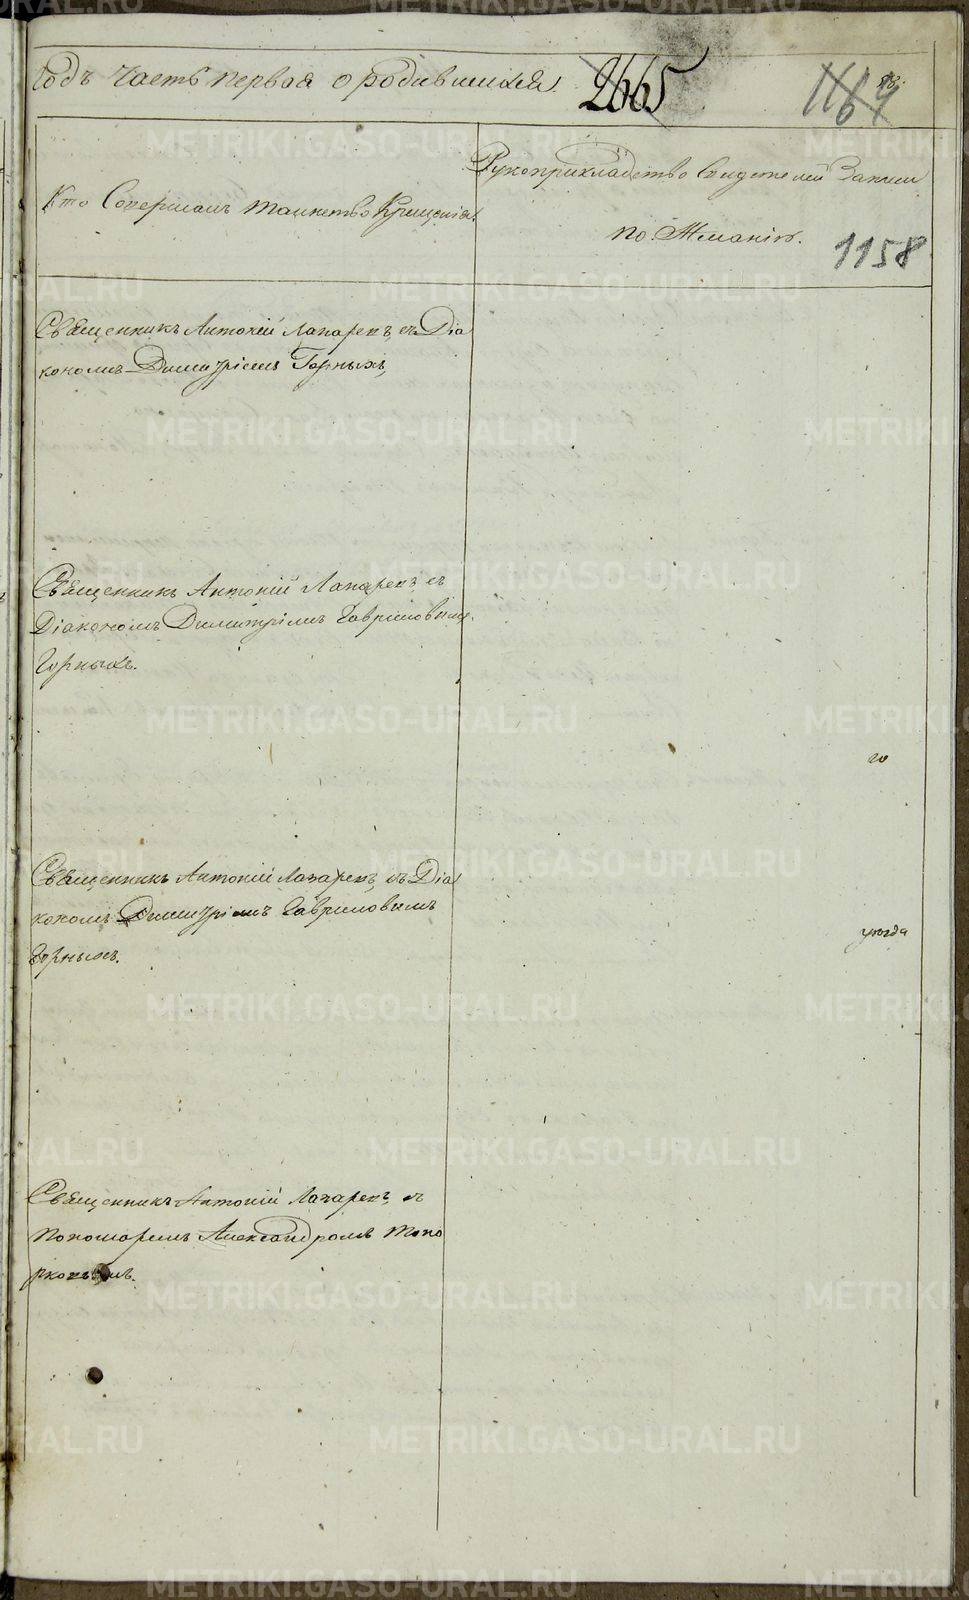 Годъ часть первая о родившихся.
2665
1169
Кто Совершалъ таинство Крещенія.
Рукоприкладство Свидетелей Записи
по Желанію.
1158
Священникъ Антоній Лапаревъ, съ Діа
кономъ Димитріемъ Горныхъ,
Священникъ Антоній Лапаревъ, съ
Діакономъ Димитріемъ Гавриловымъ
Горныхъ.
го
Священникъ Антоній Лапаревъ, съ Діа
кономъ Димитріемъ Гавриловымъ
Горныхъ.
уѣзда
Священникъ Антоній Лапаревъ, съ
Пономаремъ Александромъ Топо
рковымъ.
METRIKI.GASO-URAL.RU